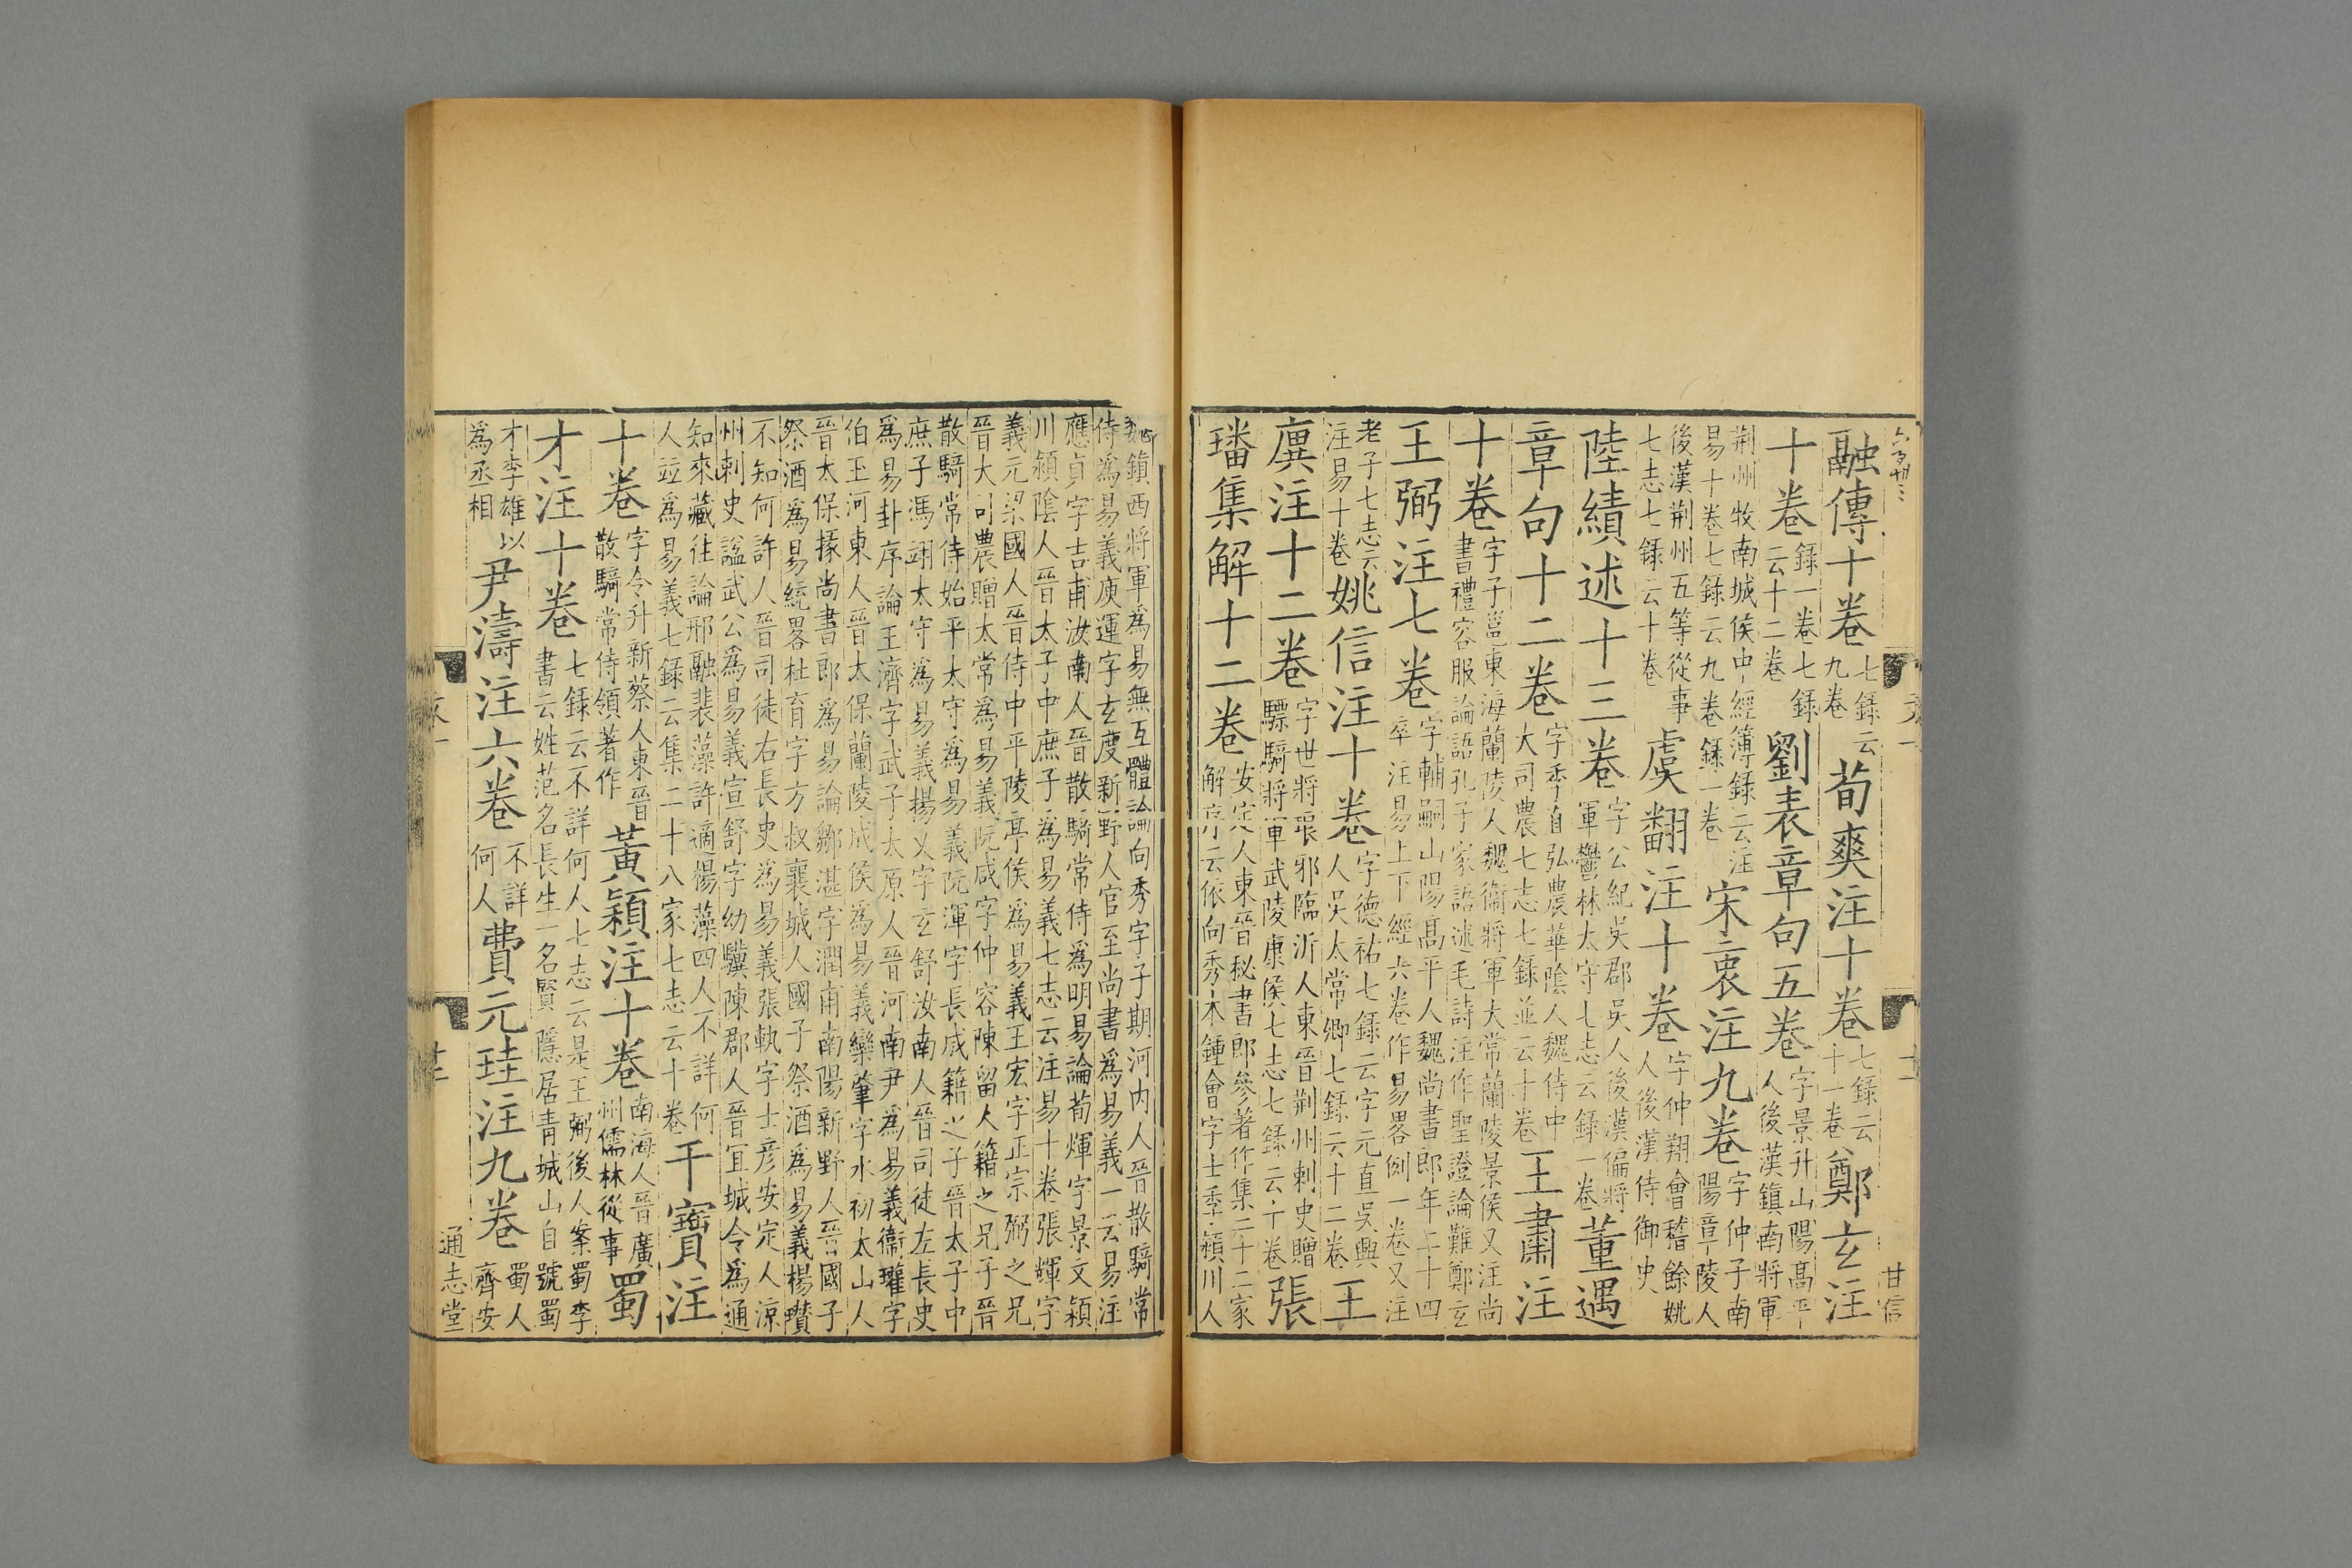 融傳十卷七錄云九卷荀爽注十卷七錄云十一卷鄭玄注
十卷錄一卷七錄云十二卷劉表章句五卷字景升山陽髙平人後漢鎮南將軍
荆州牧南城侯中經簿錄云注易十卷七錄云九卷錄一卷宋衷注九卷字仲子南陽章陵人
後漢荆州五等從事七志七錄云十卷虞翻注十卷字仲翔會稽餘姚人後漢侍御史
陸績述十三卷字公紀吳郡吳人後漢偏將軍鬱林太守七志云錄一卷董遇
章句十二卷字季直弘農華陰人魏侍中大司農七志七錄並云十卷王肅注
十卷字子邕東海蘭陵人魏衞將軍太常蘭陵景侯又注尚書禮容服論語孔子家語述毛詩注作聖證論難鄭玄
王弼注七卷字輔嗣山陽髙平人魏尚書郎年二十四卒注易上下經六卷作易畧例一卷又注
老子七志云注易十卷姚信注十卷字德祐七錄云字元直吳興人吳太常卿七錄云十二卷王
廙注十二卷字世將琅邪臨沂人東晉荆州刺史贈驃騎將軍武陵康侯七志七錄云十卷張
璠集解十二卷安定人東晉秘書郎參著作集二十二家解序云依向秀本鍾會字士季潁川人
甘信
魏鎮西將軍為易無互體論向秀字子期河內人晉散騎常
侍為易義庾運字玄度新野人官至尚書為易義一云易注
應貞字吉甫汝南人晉散騎常侍為明易論荀煇字景文潁
川潁陰人晉太子中庶子為易義七志云注易十卷張輝字
義元梁國人晉侍中平陵亭侯為易義王宏字正宗弼之兄
晉大司農贈太常為易義阮咸字仲容陳留人籍之兄子晉
散騎常侍始平太守為易義阮渾字長成籍之子晉太子中
庶子馮翊太守為易義楊乂字玄舒汝南人晉司徒左長史
為易卦序論王濟字武子太原人晉河南尹為易義衞瓘字
伯玉河東人晉太保蘭陵成侯為易義欒肇字永初太山人
晉太保掾尚書郎為易論鄒湛字潤甫南陽新野人晉國子
祭酒為易統畧杜育字方叔襄城人國子祭酒為易義楊瓚
不知何許人晉司徒右長史為易義張軌字士彥安定人涼
州刺史諡武公為易義宣舒字幼驥陳郡人晉宜城令為通
知來藏往論邢融裴藻許適楊藻四人不詳何
人竝為易義七錄云集二十八家七志云十卷干寶注
十卷字令升新蔡人東晉散騎常侍領著作黃穎注十卷南海人晉廣州儒林從事蜀
才注十卷七錄云不詳何人七志云是王弼後人案蜀李書云姓范名長生一名賢隱居青城山自號蜀
才李雄以為丞相尹濤注六卷不詳何人費元珪注九卷蜀人齊安
通志堂